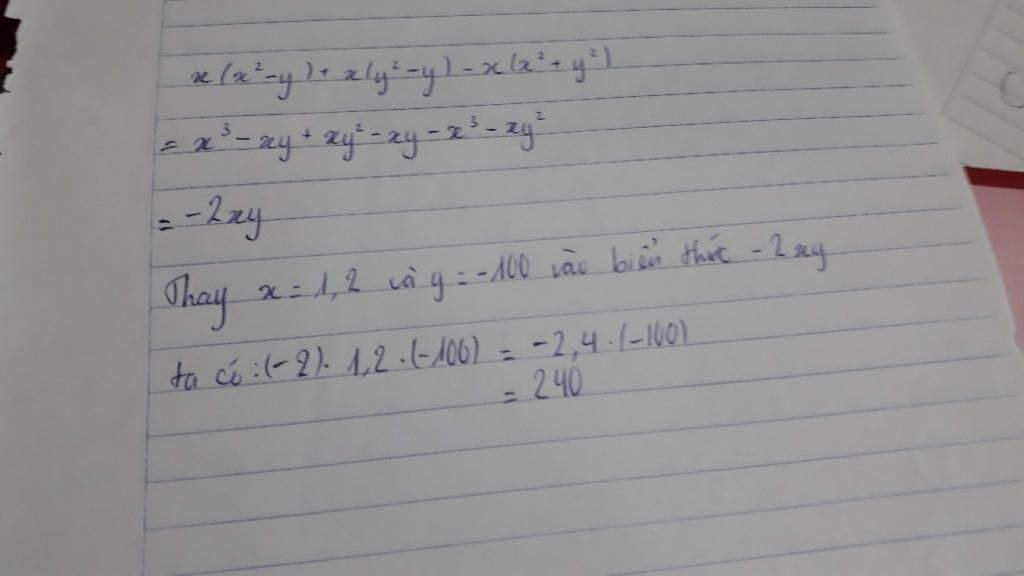 x(x²-y)+x(y²-y)-x(x²+y²)
= x³-xy+xy²-xy-x³-xy²
= -2xy
Thay x=1,2 và y=-100 vào biển thức -2xy
ta có:(-2). 1,2.(-100) = -2,4.(-100)
= 240